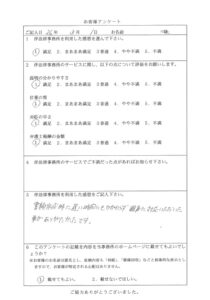 お客様アンケート
ご記入日 年 月 日 お名前 様
1 伊倉総事務所を利用した感想を選んで下さい。
① 満足 2. まあまあ満足 3 普通 4. やや不満 5. 不満
2 事務所のサービスに関し、以下の点について評価をお願いします。
説明の分かりやすさ
① 満足 2. まあまあ満足 3 普通 4. やや不満 5. 不満
仕事の質
① 満足 2. まあまあ満足 3 普通 4. やや不満 5. 不満
対応の早さ
① 満足 2. まあまあ満足 3 普通 4. やや不満 5. 不満
弁護士報酬の金額
① 満足 2. まあまあ満足 3 普通 4. やや不満 5. 不満
4 事務所のサービスでご不満だった点があれば お知らせ下さい。
5 事務所を利用した感想をご記入下さい。
遅い時間にもかかわらず 親身に対応いただいた
事がありがたかったです。
6 このアンケートの記載を内容を当事務所のホームページに載せてもよいでしょうか?
① 載せてもよい。 2 載せないでほしい。
ご協力ありがとうございました。